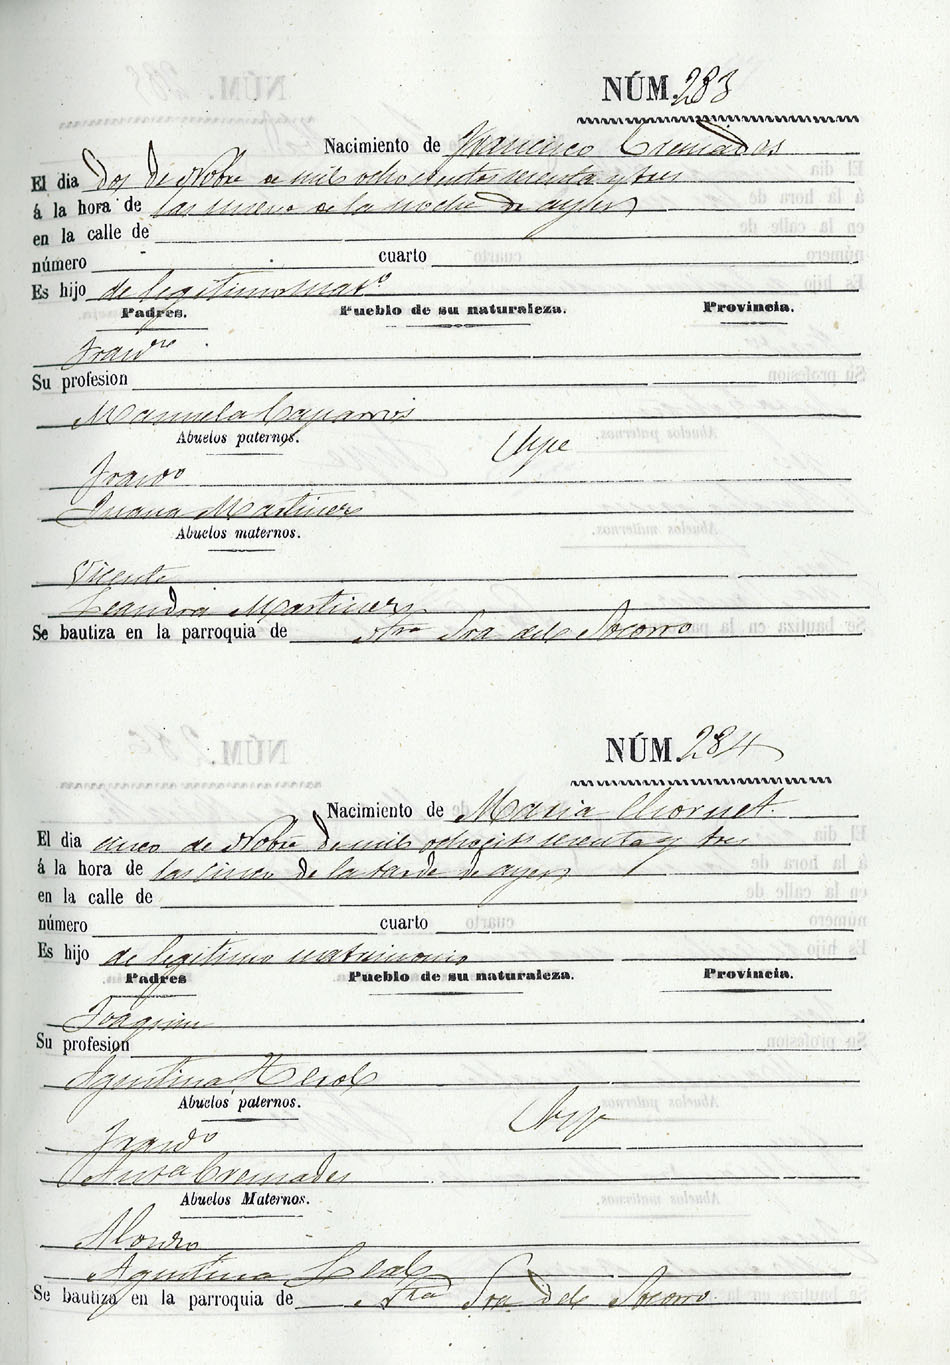 NÚM. 283
Nacimiento de Francisco Cremades
El dia dos de Nobre de mil ochocientos sesenta y tres
á la hora de las nueve de la noche de ayer
en la calle de
número cuarto
Es hijo de legitimo matº
Padres. Pueblo de su naturaleza. Provincia.
Franco
Su profesion
Manuela Caparros
Abuelos paternos.
Aspe
Franco
Juana Martinez
Abuelos maternos.
Vicente
Leandra Martinez
Se bautiza en la parroquia de Ntra Sra del Socorro
NÚM. 284
Nacimiento de Maria Chornet
El dia cinco de Nobre de mil ochocits sesenta y tres
á la hora de las cinco de la tarde de ayer
en la calle de
número cuarto
Es hijo de legitimo matrimonio
Padres Pueblo de su naturaleza. Provincia.
Joaquin
Su profesion
Agustina
Abuelos paternos.
Aspe
Franco
Anta Cremades
Abuelos Maternos.
Alonzo
Agustina Leal
Se bautiza en la parroquia de Ntra Sra del Socorro